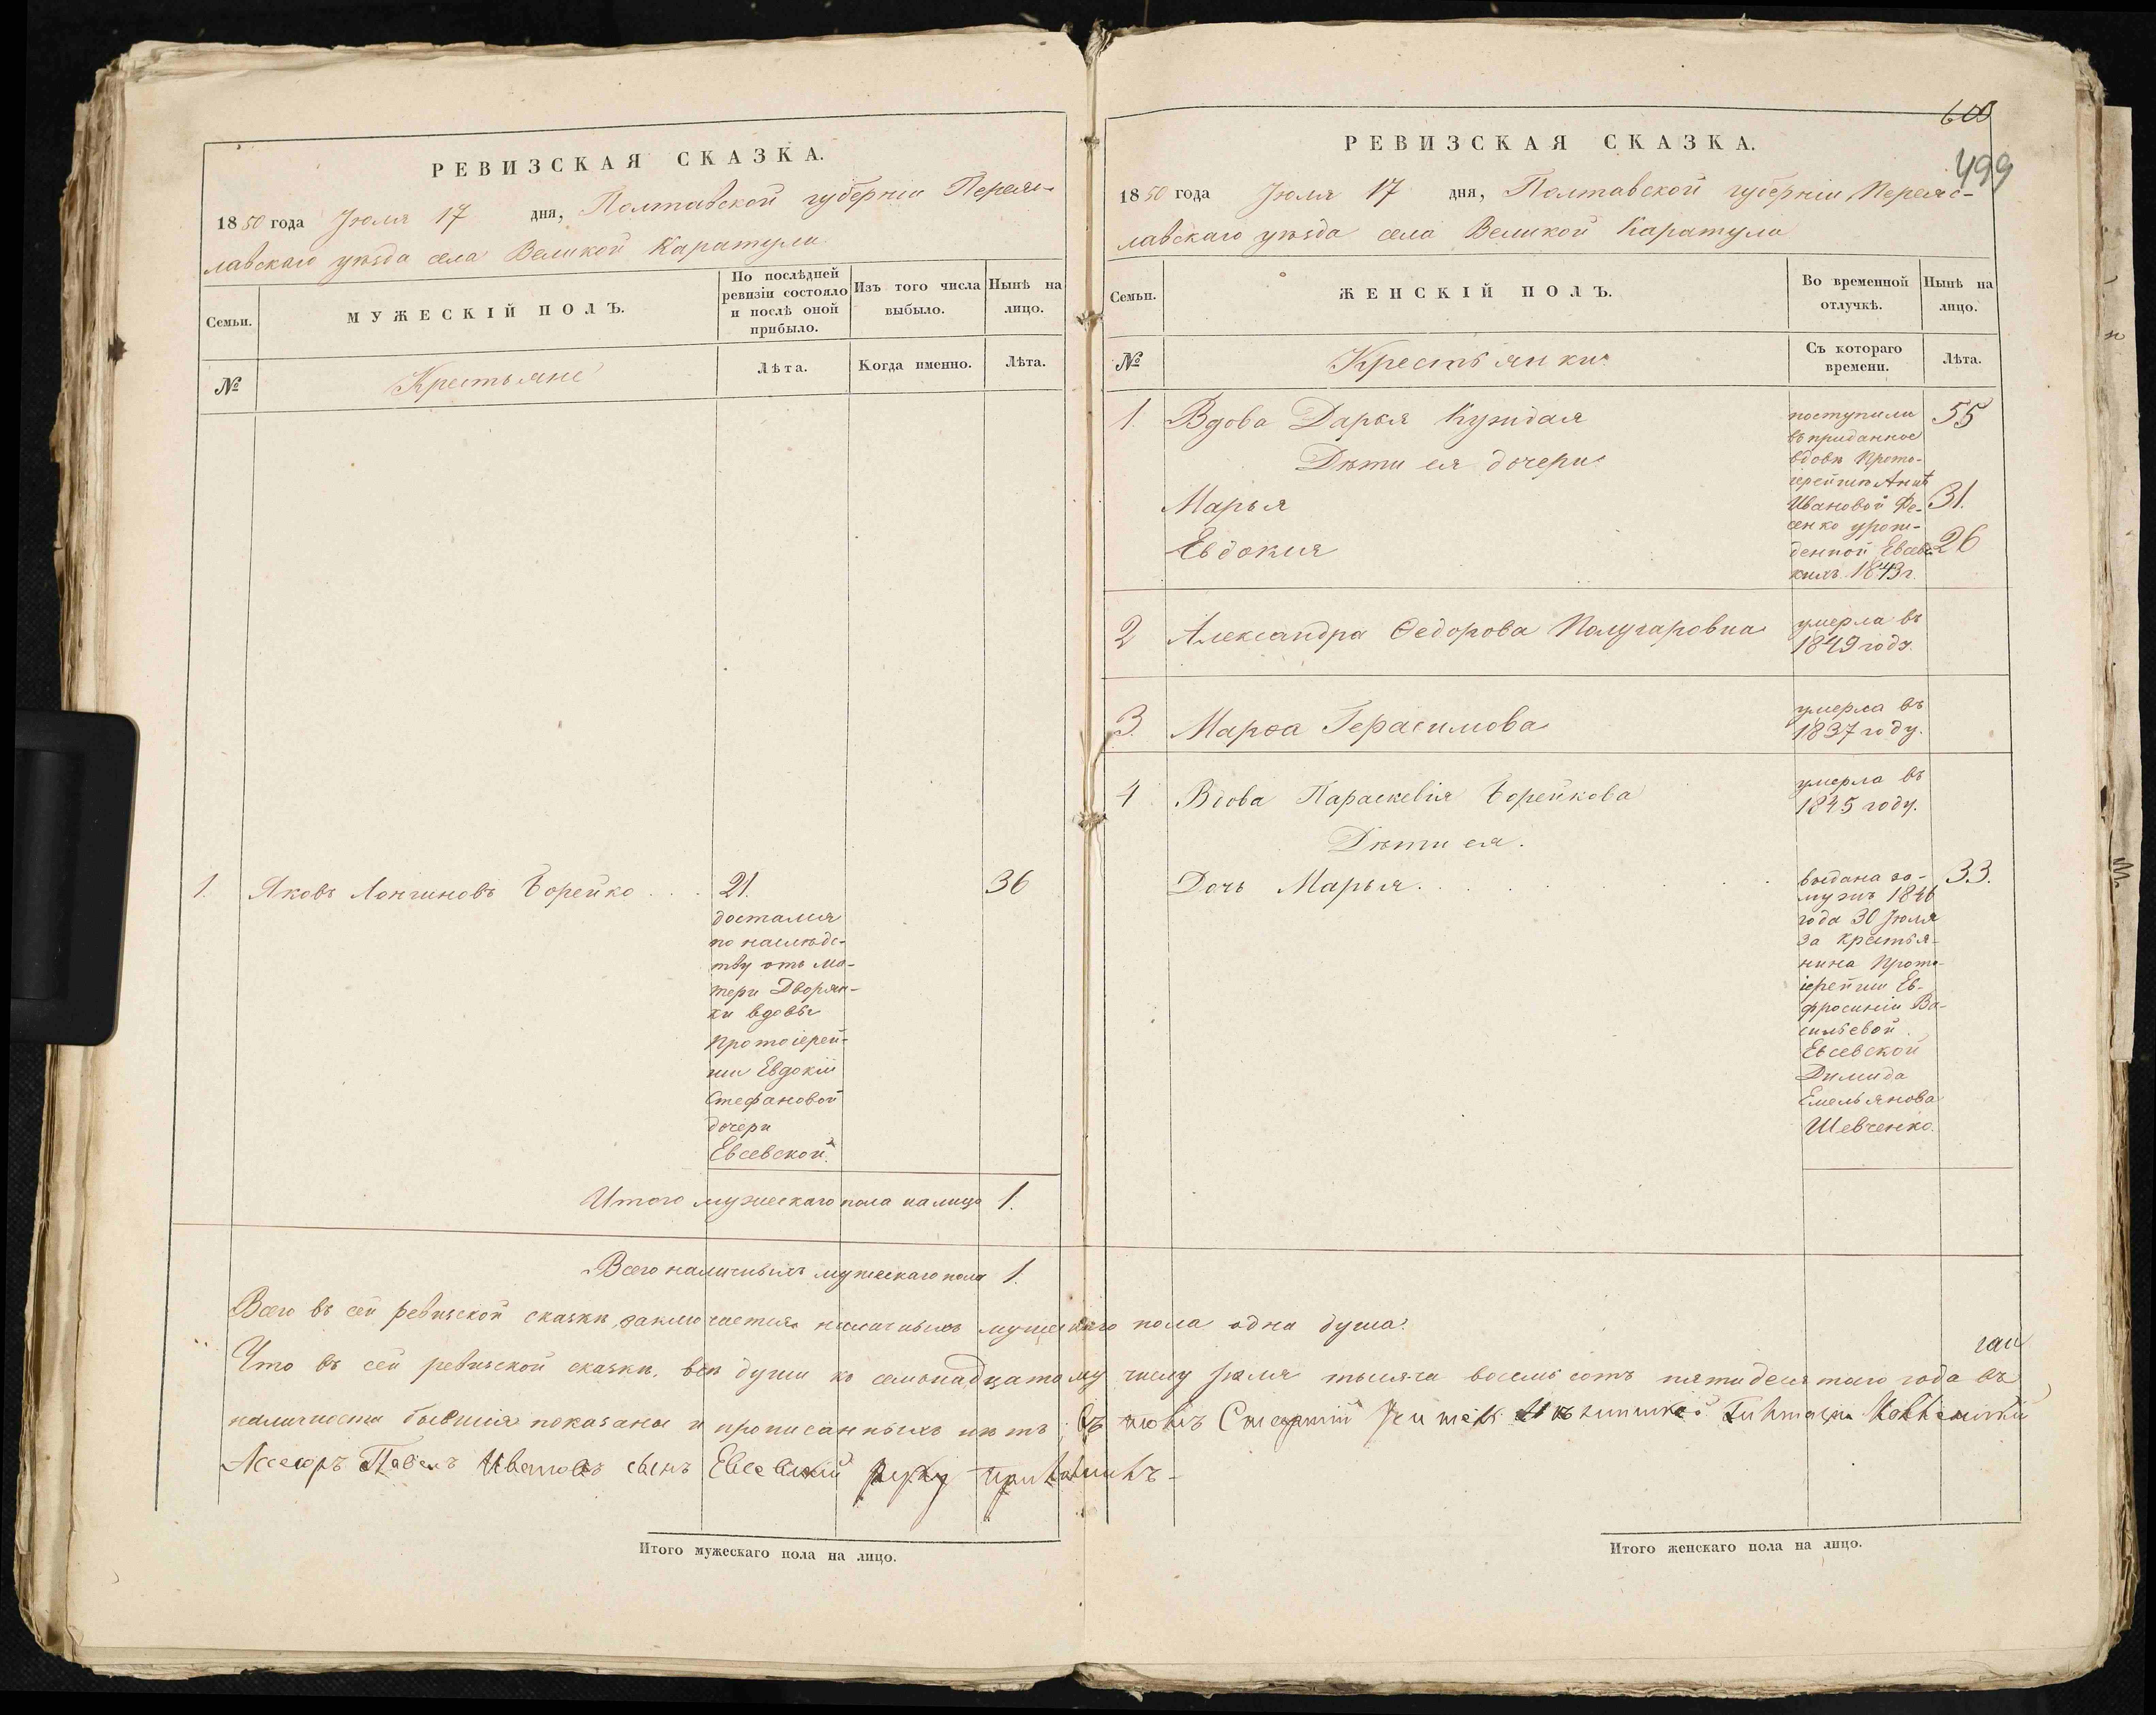 РЕВИЗСКАЯ СКАЗКА.
1850 года Іюля 17 дня, Полтавской губерніи Переяс-
лавскаго уѣзда села Великой Каратули
Семьи.
МУЖЕСКІЙ ПОЛЪ.
По послѣдней
ревизіи состояло
и послѣ оной
прибыло.
Изъ того числа
выбыло.
Нынѣ на
лицо.
№
Крестьяне
Лѣта.
Когда именно.
Лѣта.
1. Яковъ Лонгиновъ Борейко . . . 21. 36
достался
по наслѣдс-
тву отъ ма-
тери Дворян-
ки вдовы
Протоіерей-
ши Евдокіи
Стефановой
дочери
Евсевской.
Итого мужескаго пола налицо 1.
Всего наличныхъ мужескаго пола 1.
600
499
РЕВИЗСКАЯ СКАЗКА.
1850 года Іюля 17 дня, Полтавской губерніи Переяс-
лавскаго уѣзда села Великой Каратули
Семьи.
ЖЕНСКІЙ ПОЛЪ.
Во временной
отлучкѣ.
Нынѣ на
лицо.
№
Крестьянки
Съ котораго
времени.
Лѣта.
1. Вдова Дарья 55
Дѣти ея дочери
Марья 31.
Евдокия 26
поступили
въ приданное
вдовѣ Прото-
іерейшѣ Аннѣ
Ивановой Фе-
сенко урож-
денной
1843 г.
2 Александра Ѳедорова умерла въ
1849 году.
3. Марѳа Герасимова умерла въ
1837 году.
4 Вдова Параскевія Борейкова умерла въ
1845 году.
Дѣти ея.
Дочь Марья. . . . . . 33.
выдана за-
мужъ 1846
года 30 Іюля
за крестья-
нина Прото-
іерейши Ев-
фросиніи Ва-
сильевой
Евсевской
Димида
Емельянова
Шевченко.
Всего въ сей ревизской сказкѣ заключается наличныхъ мужескаго пола одна душа.
Что въ сей ревизской сказкѣ, всѣ души къ семонадцатому числу Іюля тысяча восемь сотъ пятидесятаго года въ
наличности бывшія показаны и прописанныхъ нѣтъ;
Асесоръ Павелъ Ивановъ сынъ Евсевскій руку приложилъ
Итого мужескаго пола на лицо.
Итого женскаго пола на лицо.